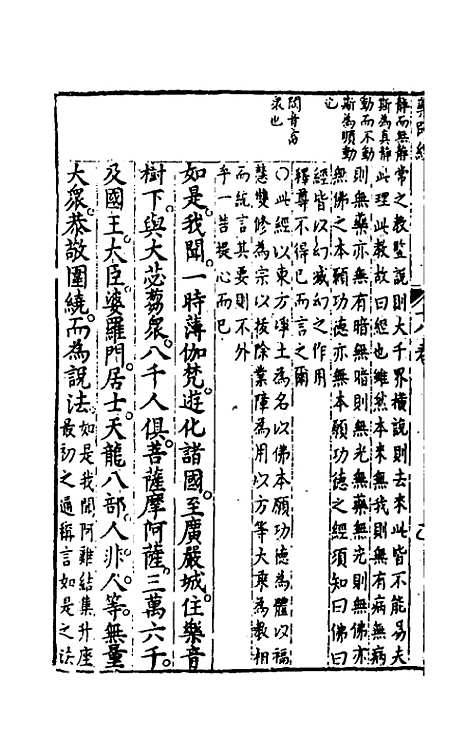 藥師經
十八卷
常之教竪說則大千界橫說則去來此皆不能易夫
此理此教故曰經也雖然本來無我則無有病無病
則無藥亦無有暗無暗則無光無藥無光則無佛亦
無佛之本願功德亦無本願功德之經須知曰佛曰
經皆以幻滅幻之作用
釋尊不得已而言之爾
〇此經以東方淨土為名以佛本願功德為體以福
慧雙修為宗以拔除業障為用以方等大乘為教相
而統言其要則不外
乎一菩提心而已
如是我聞。一時薄伽梵。遊化諸國。至廣嚴城。住樂音
樹下。與大苾芻眾。八千人俱。菩薩摩訶薩。三萬六千。
及國王。大臣。婆羅門。居士。天龍八部。人。非人。等。無量
大眾。恭敬圍繞。而為說法
如是我聞阿難結集升座
最初之通稱言如是之法
靜而無靜
斯為真靜
動而不動
斯為順動
也
聞音高
眾也